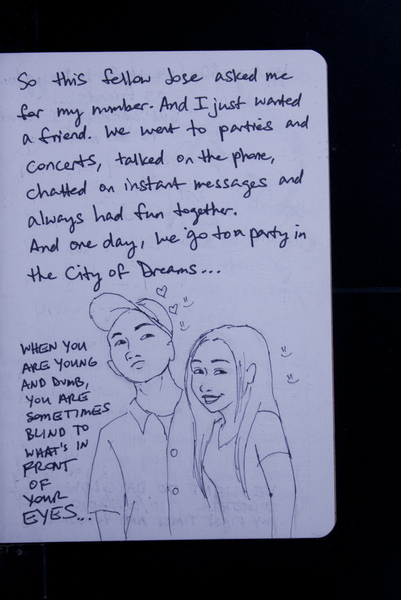 So this fellow Jose asked me
for my number. And I just wanted
a friend. We went to parties and
concerts, talked on the phone,
chatted on instant messages and
always had fun together.
And one day, we go to a party in
the City of Dreams...
WHEN YOU
ARE YOUNG
AND DUMB,
YOU ARE
SOMETIMES
BLIND TO
WHAT'S IN
FRONT
OF
YOUR
EYES...